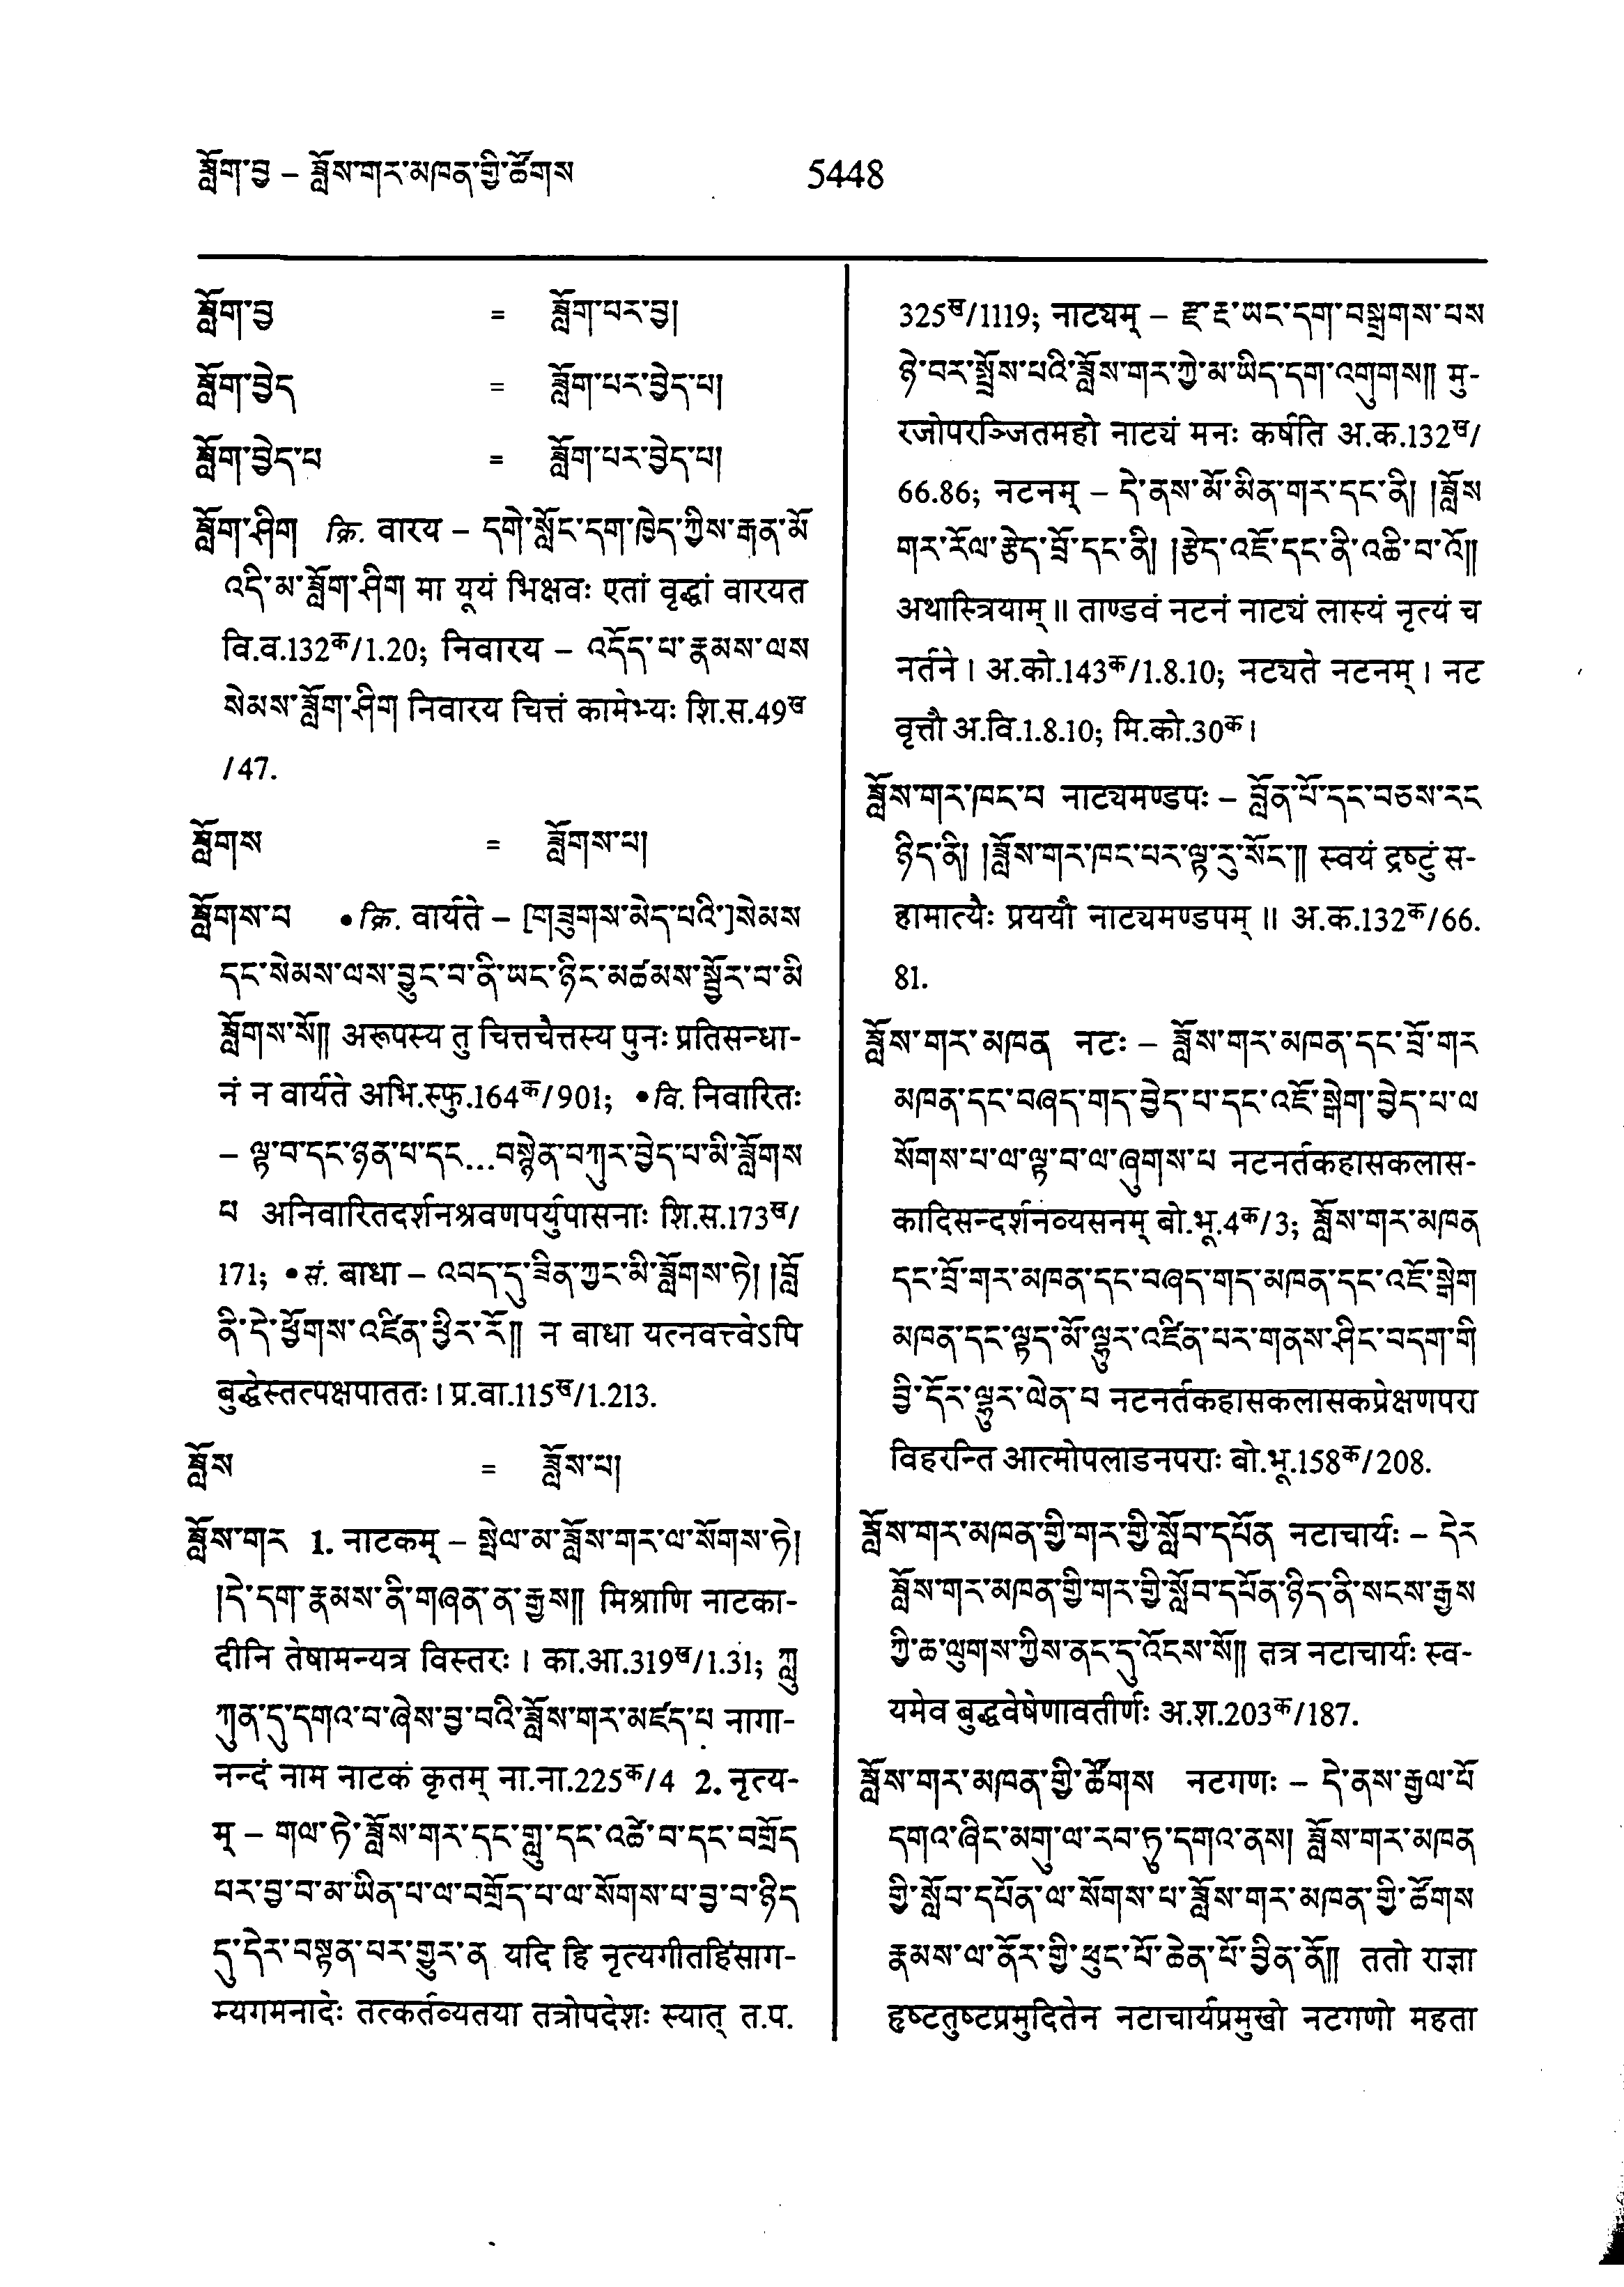 བཟློག་བྱ – ཟློས་གར་མཁན་གྱི་ཚོགས
5448
ཟློག་བྱ = ཟློག་པར་བྱ།
ཟློག་བྱེད = ཟློག་པར་བྱེད་པ།
ཟློག་བྱེད་པ = ཟློག་པར་བྱེད་པ།
ཟློག་ཤིག क्रि. वारय – དགེ་སློང་དག་ཁྱེད་ཀྱིས་རྒན་མོ
འདི་མ་ཟློག་ཤིག मा यूयं भिक्षवः एतां वृद्धां वारयत
वि.व.132क/1.20; निवारय – འདོད་པ་རྣམས་ལས
སེམས་ཟློག་ཤིག निवारय चित्तं कामेभ्यः शि.स.49ख
/47.
ཟློགས = ཟློགས་པ།
ཟློགས་པ •क्रि. वार्यते – [གཟུགས་མེད་པའི་]སེམས
དང་སེམས་ལས་བྱུང་བ་ནི་ཡང་ཉིང་མཚམས་སྦྱོར་བ་མི
ཟློགས་སོ༎ अरूपस्य तु चित्तचैत्तस्य पुनः प्रतिसन्धा-
नं न वार्यते अभि.स्फु.164क/901; •वि. निवारितः
– ལྟ་བ་དང་ཉན་པ་དང...བསྙེན་བཀུར་བྱེད་པ་མི་ཟློགས
པ अनिवारितदर्शनश्रवणपर्युपासनाः शि.स.173ख/
171; •सं. बाधा – འབད་དུ་ཟིན་ཀྱང་མི་ཟློགས་ཏེ། །བློ
ནི་དེ་ཕྱོགས་འཛིན་ཕྱིར་རོ༎ न बाधा यत्नवत्त्वेऽपि
बुद्धेस्तत्पक्षपाततः। प्र.वा.115ख/1.213.
ཟློས = ཟློས་པ།
ཟློས་གར 1. नाटकम् – སྤེལ་མ་ཟློས་གར་ལ་སོགས་ཏེ།
།དེ་དག་རྣམས་ནི་གཞན་ན་རྒྱས༎ मिश्राणि नाटका-
दीनि तेषामन्यत्र विस्तरः। का.आ.319ख/1.31; ཀླུ
ཀུན་དུ་དགའ་བ་ཞེས་བྱ་བའི་ཟློས་གར་མཛད་པ नागा-
नन्दं नाम नाटकं कृतम् ना.ना.225क/4 2. नृत्य-
म् – གལ་ཏེ་ཟློས་གར་དང་གླུ་དང་འཚེ་བ་དང་བགྲོད
པར་བྱ་བ་མ་ཡིན་པ་ལ་བགྲོད་པ་ལ་སོགས་པ་བྱ་བ་ཉིད
དུ་དེར་བསྟན་པར་གྱུར་ན यदि हि नृत्यगीतहिंसाग-
म्यगमनादेः तत्कर्तव्यतया तत्रोपदेशः स्यात् त.प.
325ख/1119; नाट्यम् – རྫ་རྔ་ཡང་དག་བསྒྲགས་པས
ཉེ་བར་སྤྲོས་པའི་ཟློས་གར་ཀྱེ་མ་ཡིད་དག་འགུགས༎ मु-
रजोपरञ्जितमहो नाट्यं मनः कर्षति अ.क.132ख/
66.86; नटनम् – དེ་ནས་མོ་མིན་གར་དང་ནི། །ཟློས
གར་རོལ་རྩེད་བྲོ་དང་ནི། །རྩེད་འཇོ་དང་ནི་འཆི་བ་འོ༎
अथास्त्रियाम्॥ ताण्डवं नटनं नाट्यं लास्यं नृत्यं च
नर्तने। अ.को.143क/1.8.10; नट्यते नटनम्। नट
वृत्तौ अ.वि.1.8.10; मि.को.30क।
ཟློས་གར་ཁང་པ नाट्यमण्डपः – བློན་པོ་དང་བཅས་རང
ཉིད་ནི། །ཟློས་གར་ཁང་པར་ལྟ་རུ་སོང་༎ स्वयं द्रष्टुं स-
हामात्यैः प्रययौ नाट्यमण्डपम्॥ अ.क.132क/66.
81.
ཟློས་གར་མཁན नटः – ཟློས་གར་མཁན་དང་བྲོ་གར
མཁན་དང་བཞད་གད་བྱེད་པ་དང་འཇོ་སྒེག་བྱེད་པ་ལ
སོགས་པ་ལ་ལྟ་བ་ལ་ཞུགས་པ नटनर्तकहासकलास-
कादिसन्दर्शनव्यसनम् बो.भू.4क/3; ཟློས་གར་མཁན
དང་བྲོ་གར་མཁན་དང་བཞད་གད་མཁན་དང་འཇོ་སྒེག
མཁན་དང་ལྟད་མོ་ལྷུར་འཛིན་པར་གནས་ཤིང་བདག་གི
བྱི་དོར་ལྷུར་ལེན་པ नटनर्तकहासकलासकप्रेक्षणपरा
विहरन्ति आत्मोपलाडनपराः बो.भू.158क/208.
ཟློས་གར་མཁན་གྱི་གར་གྱི་སློབ་དཔོན नटाचार्यः – དེར
ཟློས་གར་མཁན་གྱི་གར་གྱི་སློབ་དཔོན་ཉིད་ནི་སངས་རྒྱས
ཀྱི་ཆ་ལུགས་ཀྱིས་ནང་དུ་འོངས་སོ༎ तत्र नटाचार्यः स्व-
यमेव बुद्धवेषेणावतीर्णः अ.श.203क/187.
ཟློས་གར་མཁན་གྱི་ཚོགས नटगणः – དེ་ནས་རྒྱལ་པོ
དགའ་ཞིང་མགུ་ལ་རབ་ཏུ་དགའ་ནས། ཟློས་གར་མཁན
གྱི་སློབ་དཔོན་ལ་སོགས་པ་ཟློས་གར་མཁན་གྱི་ཚོགས
རྣམས་ལ་ནོར་གྱི་ཕུང་པོ་ཆེན་པོ་བྱིན་ནོ༎ ततो राज्ञा
हृष्टतुष्टप्रमुदितेन नटाचार्यप्रमुखो नटगणो महता